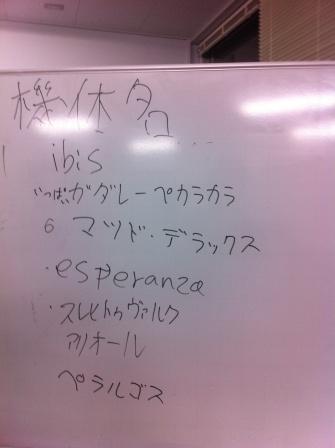 機体名
ibis
いっぱいガダレーペカラカラ
6 マツド・デラックス
・esperanza
・スレヒトゥヴァルク
アリオール
ペラルゴス